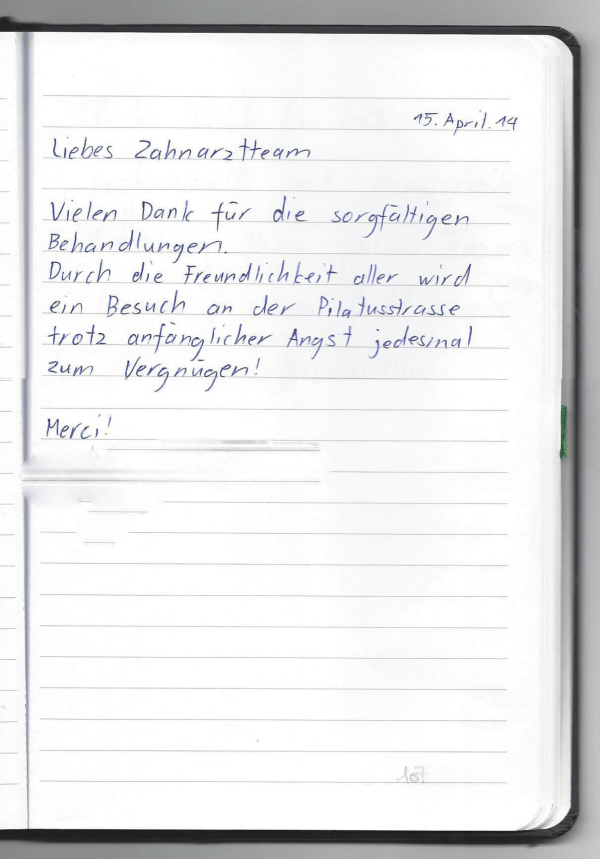 15. April. 14
Liebes Zahnarztteam
Vielen Dank für die sorgfältigen
Behandlungen.
Durch die Freundlichkeit aller wird
ein Besuch an der Pilatusstrasse
trotz anfänglicher Angst jedesmal
zum Vergnügen!
Merci!